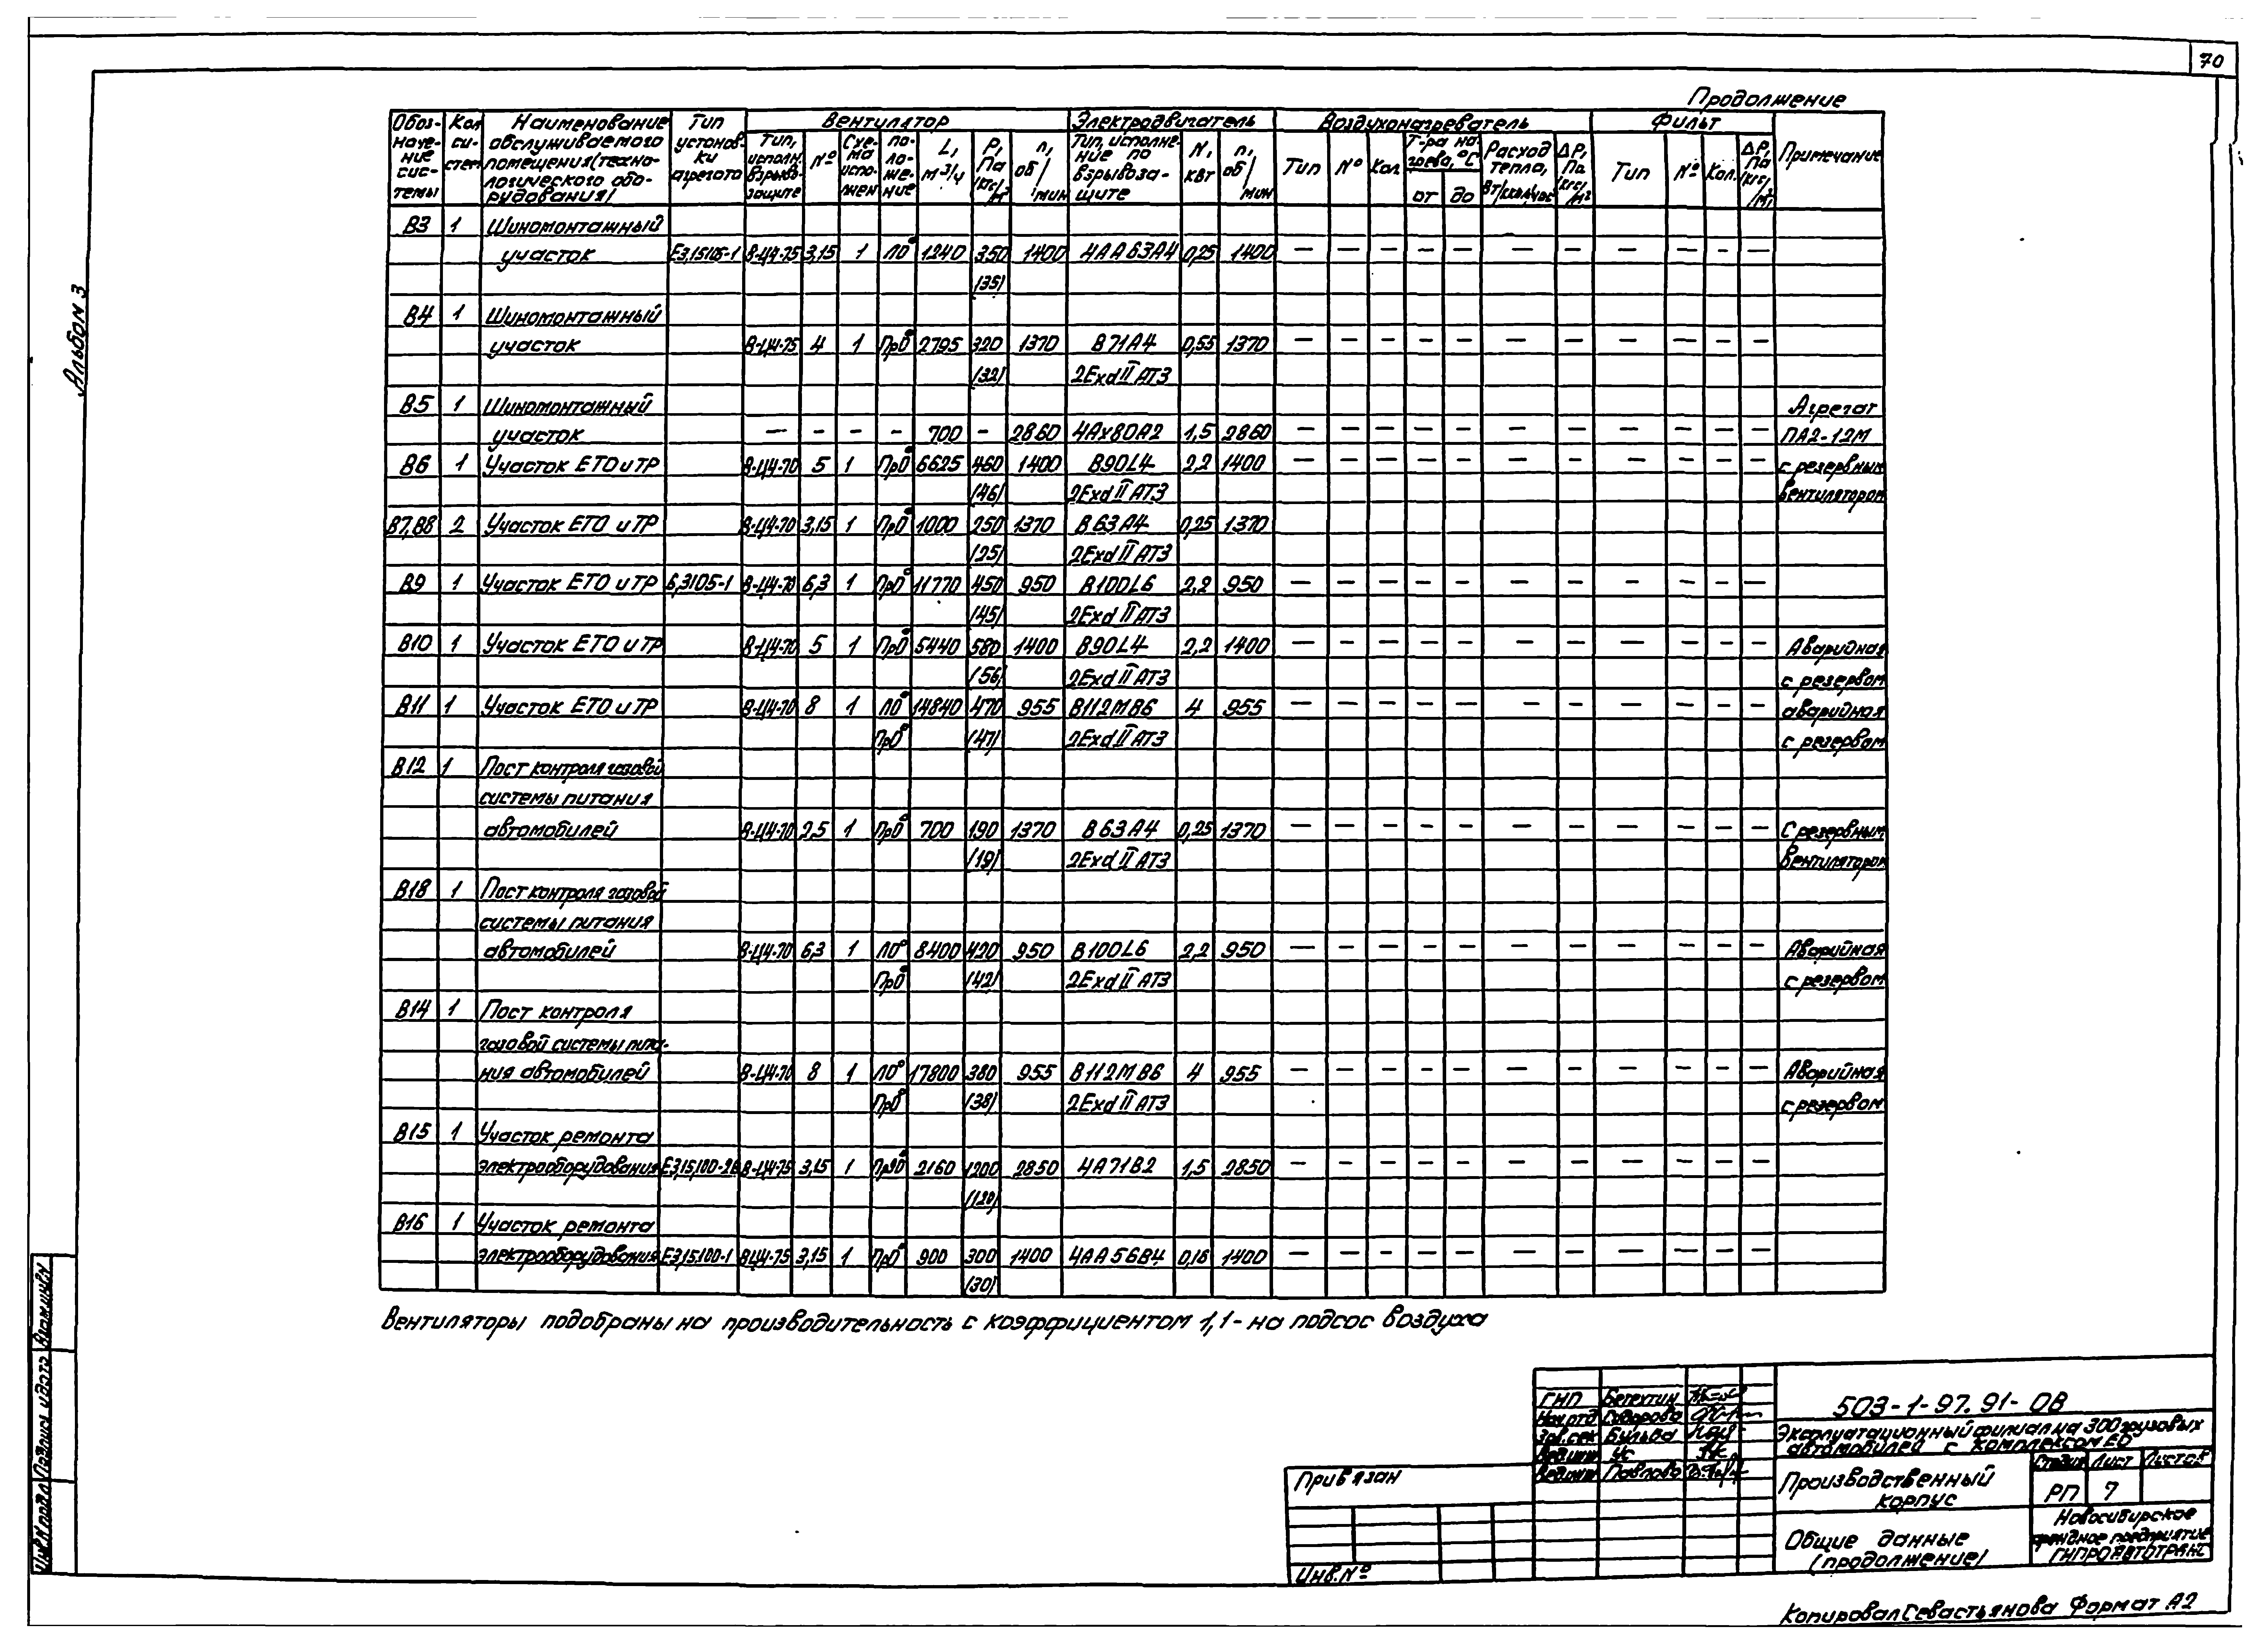 70
Продолжение
Альбом 3
Обоз-наче-ние сис-темы | Кол. си-стем | Наименование обслуживаемого помещения (техно-логического обо-рудования) | Тип установ-ки агрегата | Вентилятор | Электродвигатель | Воздухонагреватель | Фильт | Примечание
Тип, исполн. взрыво-защите | № | Схе-ма испо-лнен | по-ло-же-ние | L, м³/ч | P, Па (кгс/м²) | n, об/мин | Тип, исполне-ние по взрывоза-щите | N, квт | n, об/мин | Тип | № | Кол. | Т-ра на-грева, °С от до | Расход тепла, Вт/(ккал/час) | ΔP, Па (кгс/м²) | Тип | № | Кол. | ΔP, Па (кгс/м²)
В3 1 Шиномонтажный
участок Е3,15105-1 В-Ц4-75 3,15 1 Л0° 1240 350 1400 4АА63А4 0,25 1400 — — — — — — — — — — —
(35)
В4 1 Шиномонтажный
участок В-Ц4-75 4 1 Пр0° 2795 320 1370 В71А4 0,55 1370 — — — — — — — — — — —
(32) 2ExdIIAT3
В5 1 Шиномонтажный Агрегат
участок — — — — 700 — 2860 4АХ80А2 1,5 2860 — — — — — — — — — — — ПА2-12М
В6 1 Участок ЕТО и ТР В-Ц4-70 5 1 Пр0° 6625 460 1400 В90L4 2,2 1400 — — — — — — — — — — — с резервным
(46) 2ExdIIAT3 вентилятором
В7,В8 2 Участок ЕТО и ТР В-Ц4-70 3,15 1 Пр0° 1000 250 1370 В63А4 0,25 1370
(25) 2ExdIIAT3
В9 1 Участок ЕТО и ТР 6,3105-1 В-Ц4-70 6,3 1 Пр0° 11770 450 950 В100L6 2,2 950 — — — — — — — — — — —
(45) 2ExdIIAT3
В10 1 Участок ЕТО и ТР В-Ц4-70 5 1 Пр0° 5440 580 1400 В90L4 2,2 1400 — — — — — — — — — — — Аварийная
(56) 2ExdIIAT3 с резервом
В11 1 Участок ЕТО и ТР В-Ц4-70 8 1 Л0° 14840 470 955 В112МВ6 4 955 — — — — — — — — — — — аварийная
Пр0° (47) 2ExdIIAT3 с резервом
В12 1 Пост контроля газовой
системы питания
автомобилей В-Ц4-70 2,5 1 Пр0° 700 190 1370 В63А4 0,25 1370 — — — — — — — — — — — С резервным
(19) 2ExdIIAT3 вентилятором
В18 1 Пост контроля газовой
системы питания
автомобилей В-Ц4-70 6,3 1 Л0° 8400 420 950 В100L6 2,2 950 — — — — — — — — — — — Аварийная
Пр0° (42) 2ExdIIAT3 с резервом
В14 1 Пост контроля
газовой системы пита-
ния автомобилей В-Ц4-70 8 1 Л0° 17800 380 955 В112МВ6 4 955 — — — — — — — — — — — Аварийная
Пр0° (38) 2ExdIIAT3 с резервом
В15 1 Участок ремонта
электрооборудования Е3,15,100-2в В-Ц4-75 3,15 1 Пр90° 2160 1200 2850 4А71В2 1,5 2850 — — — — — — — — — — —
(120)
В16 1 Участок ремонта
электрооборудования Е3,15,100-1 ВЦ4-75 3,15 1 Пр0° 900 300 1400 4АА56В4 0,16 1400 — — — — — — — — — — —
(30)
Вентиляторы подобраны на производительность с коэффициентом 1,1 - на подсос воздуха
ГНП Бегехтин
Нач.отд Сидорова
Зав.сек Бульва
Вед.инж Ус
Вед.инж Павлова
503-1-97.91-ОВ
Эксплуатационный филиал на 300 грузовых
автомобилей с комплексом ЕО
Производственный
корпус
Стадия Лист Листов
РП 7
Общие данные
(продолжение)
Новосибирское
арендное предприятие
ГИПРОАВТОТРАНС
Привязан
Инв.№
Инв.№ подл. Подпись и дата Взам.инв.№
Копировал Севастьянова Формат А2